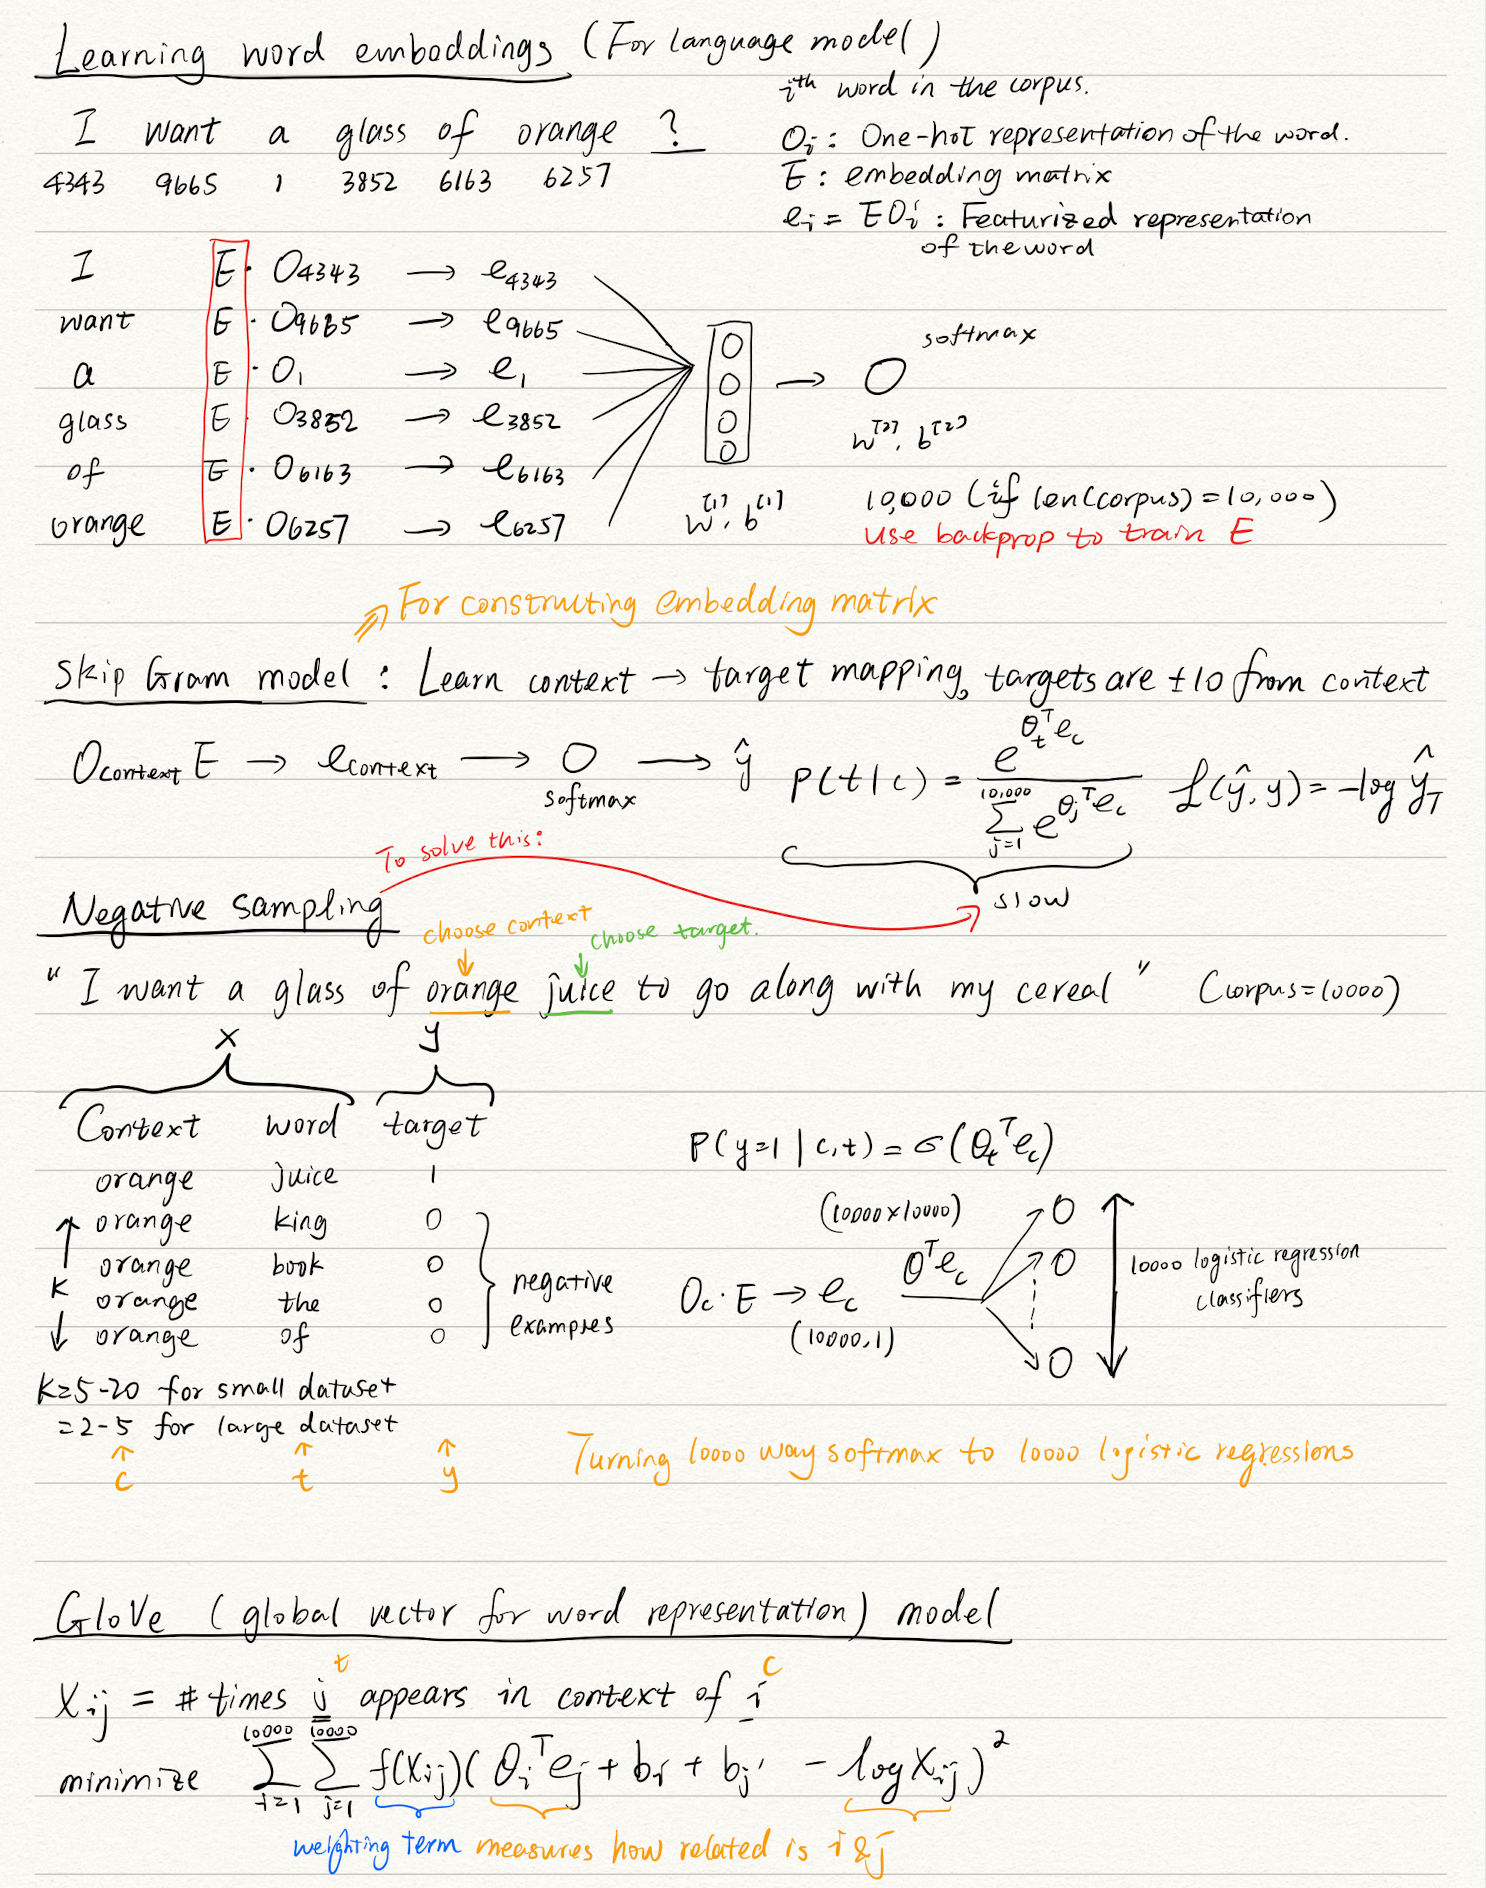 Learning word embeddings (For language model)
ith word in the corpus.
I want a glass of orange ?
4343 9665 1 3852 6163 6257
Oi : One-hot representation of the word.
E : embedding matrix
ei = EOi : Featurized representation
of the word
I E · O4343 → e4343
want E · O9665 → e9665
a E · O1 → e1
glass E · O3852 → e3852
of E · O6163 → e6163
orange E · O6257 → e6257
softmax
W[1], b[1]
W[2], b[2]
10,000 (if len(corpus) = 10,000)
use backprop to train E
⇒ For constructing embedding matrix
Skip Gram model : Learn context → target mapping, targets are ±10 from context
Ocontext E → econtext → O → ŷ
softmax
P(t|c) = e^(θt^T ec) / Σ_{j=1}^{10,000} e^(θj^T ec)
L(ŷ, y) = -log ŷT
slow
To solve this:
Negative sampling
choose context
choose target.
" I want a glass of orange juice to go along with my cereal " (corpus = 10000)
X y
Context word target
orange juice 1
orange king 0
orange book 0
orange the 0
orange of 0
K
negative
examples
K=5-20 for small dataset
=2-5 for large dataset
c t y
P(y=1 | c,t) = σ(θt^T ec)
(10000x10000)
Oc · E → ec θ^T ec
(10000,1)
10000 logistic regression
classifiers
Turning 10000 way softmax to 10000 logistic regressions
GloVe (global vector for word representation) model
t c
Xij = # times j appears in context of i
minimize Σ_{i=1}^{10000} Σ_{j=1}^{10000} f(Xij)(θi^T ej + bi + bj' - log Xij)^2
weighting term measures how related is i & j